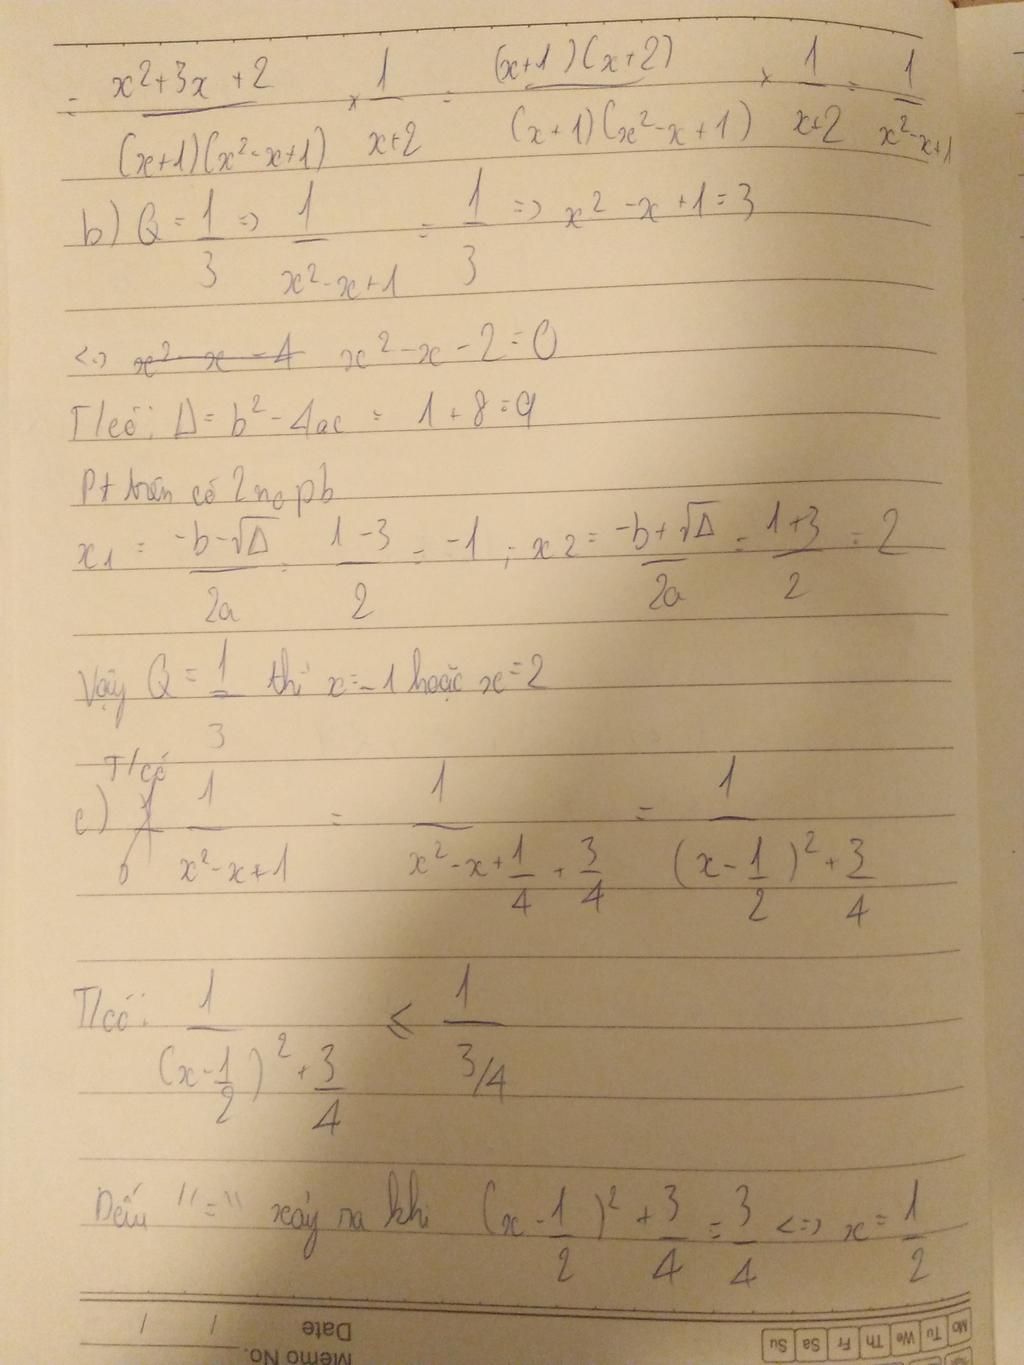 = (x²+3x+2)/((x+1)(x²-x+1)) × 1/(x+2) = ((x+1)(x+2))/((x+1)(x²-x+1)) × 1/(x+2) = 1/(x²-x+1)
b) Q = 1/3 => 1/(x²-x+1) = 1/3 => x²-x+1=3
<=> x²-x-4 x²-x-2=0
T/có: Δ = b²-4ac = 1+8=9
Pt trên có 2 no pb
x1 = (-b-√Δ)/2a = (1-3)/2 = -1 ; x2 = (-b+√Δ)/2a = (1+3)/2 = 2
Vậy Q = 1/3 thì x=-1 hoặc x=2
T/có
c) 1/(x²-x+1) = 1/(x²-x+1/4+3/4) = 1/((x-1/2)²+3/4)
T/có: 1/((x-1/2)²+3/4) ≤ 1/(3/4)
Dấu "=" xảy ra khi (x-1/2)²+3/4=3/4 <=> x=1/2
Mo Tu We Th Fr Sa Su
Date / /
Memo No.